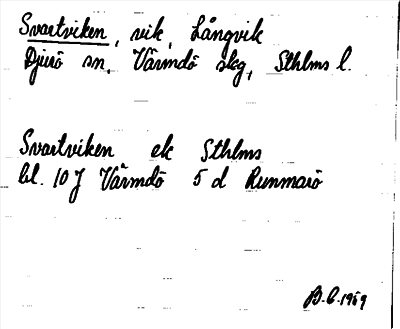 Svartviken, vik, Långvik
Djurö sn, Värmdö skg, Sthlms l.
Svartviken ek Sthlms
bl. 10 J Värmdö 5 d Runmarö
B.G. 1969